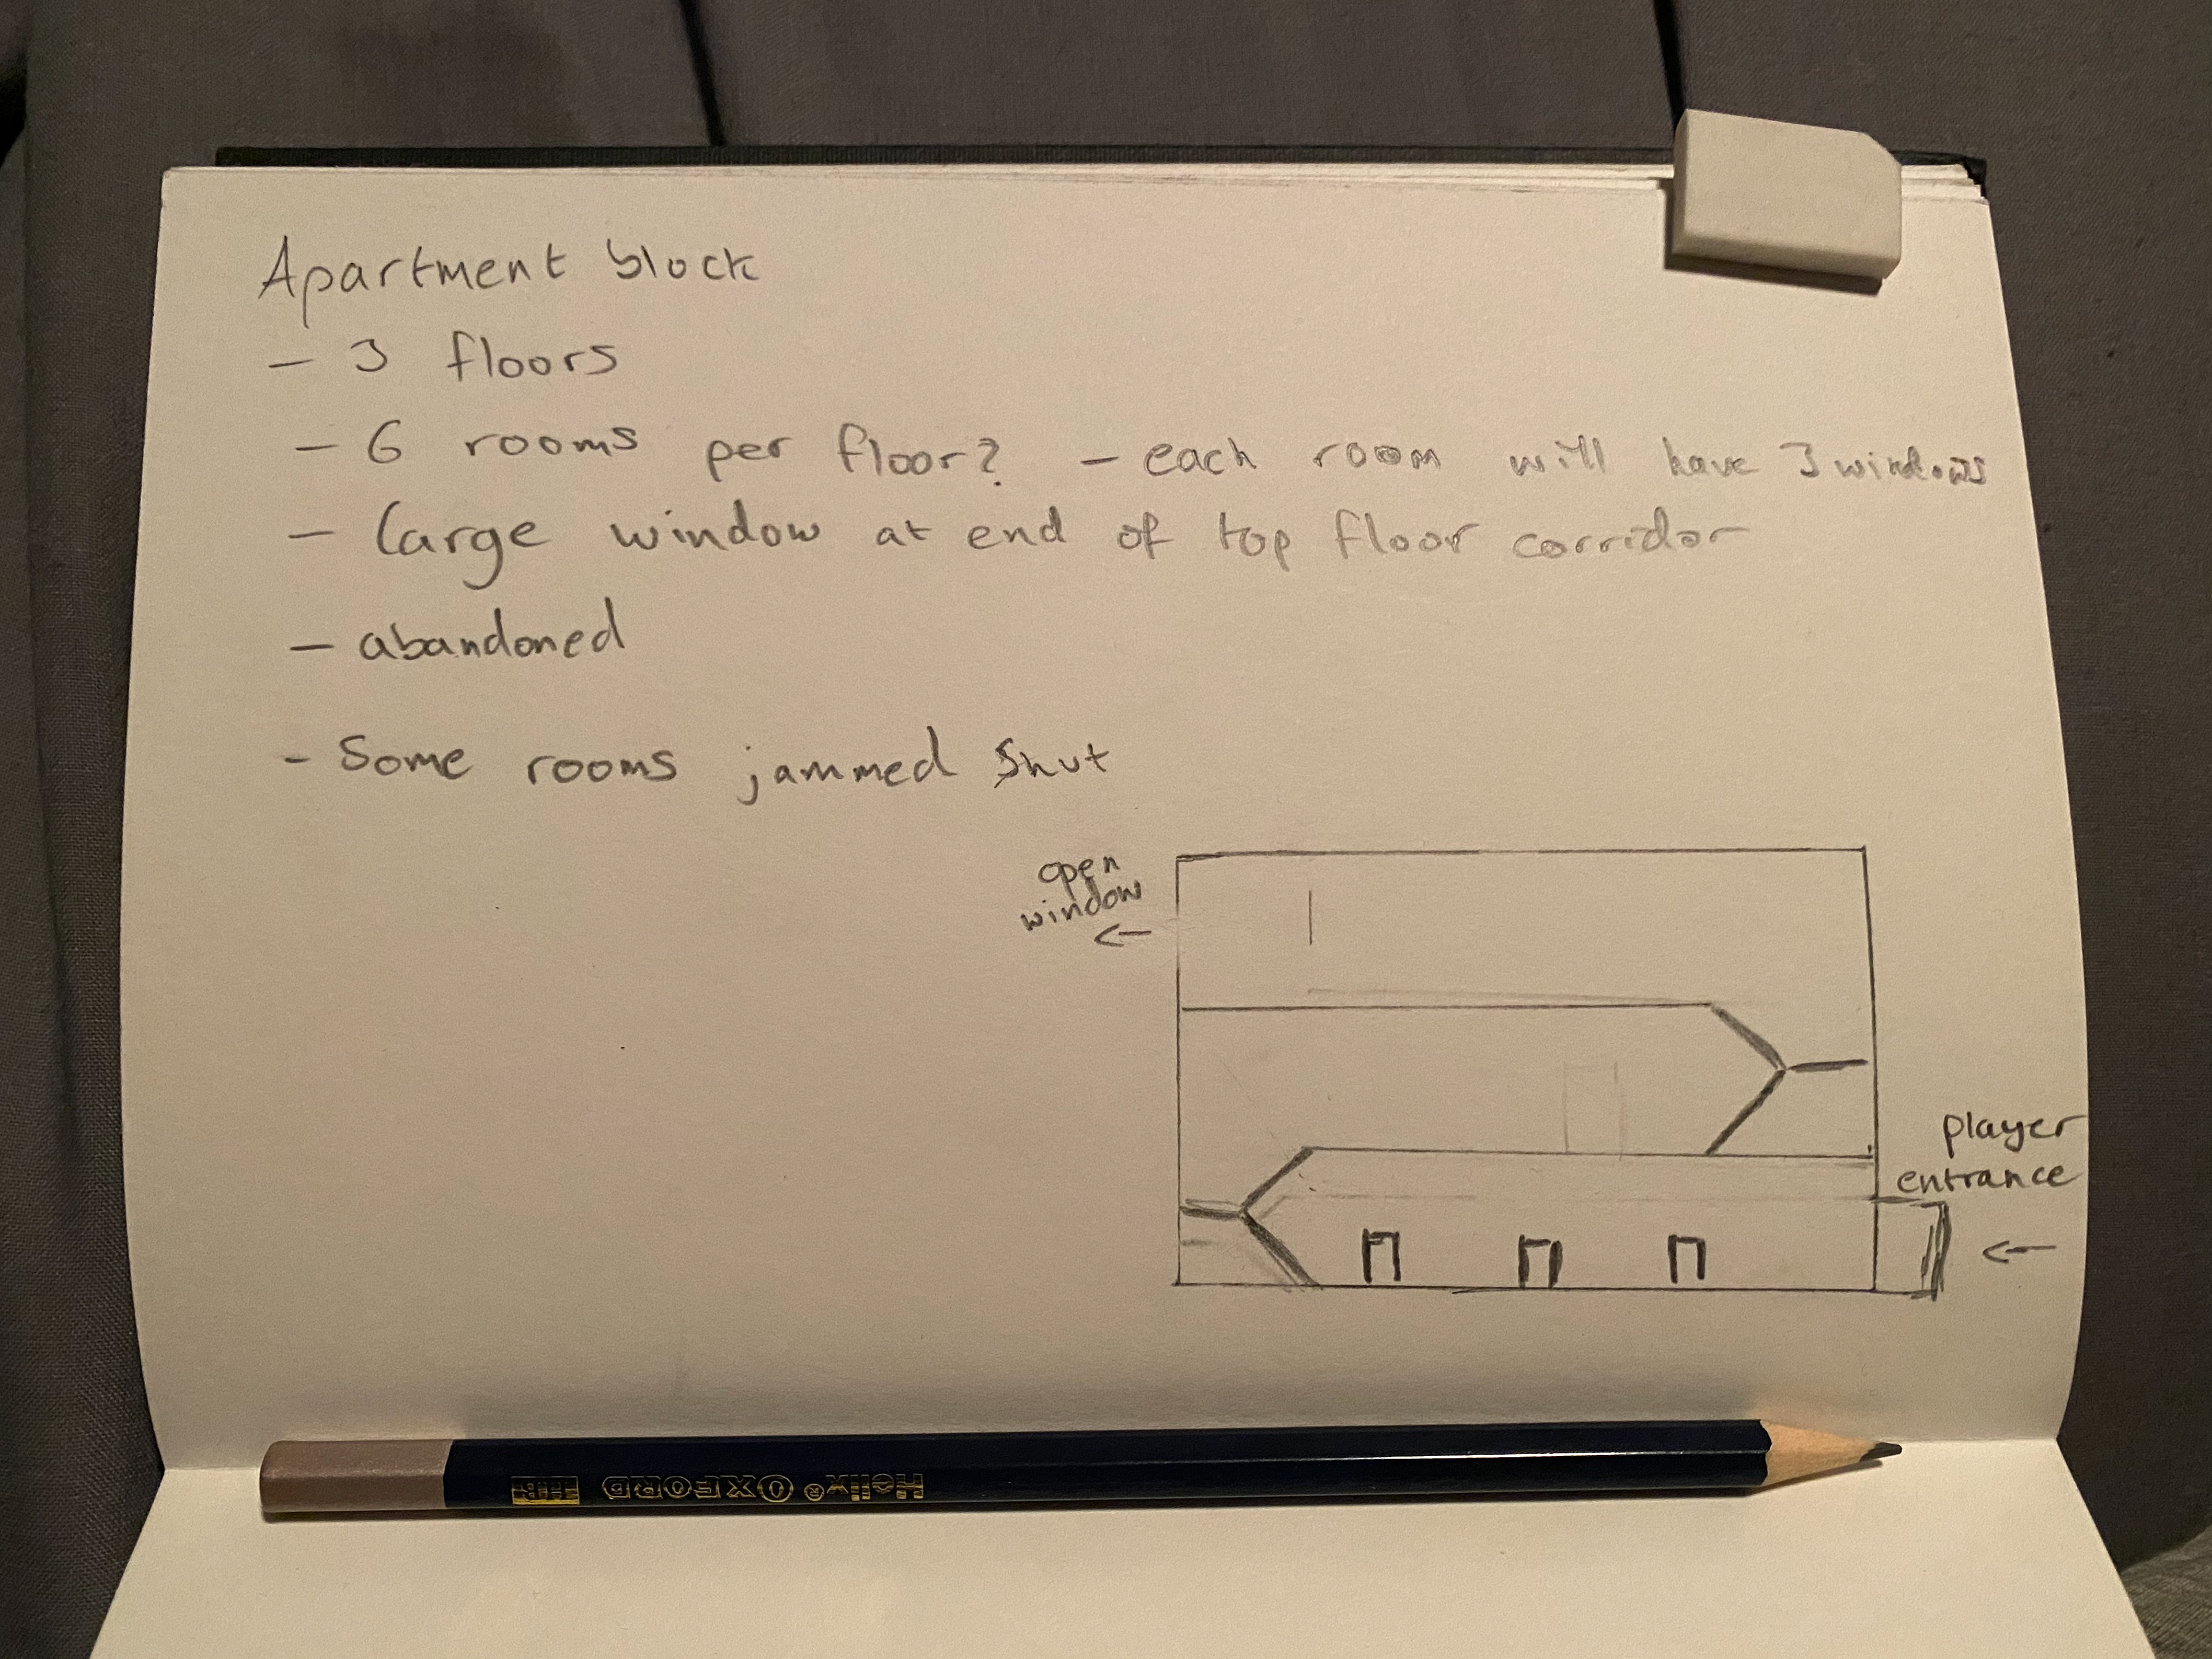 Apartment block
- 3 floors
- 6 rooms per floor? - each room will have 3 windows
- Large window at end of top floor corridor
- abandoned
- Some rooms jammed shut
open
window
←
player
entrance
←
Helix® OXFORD HB